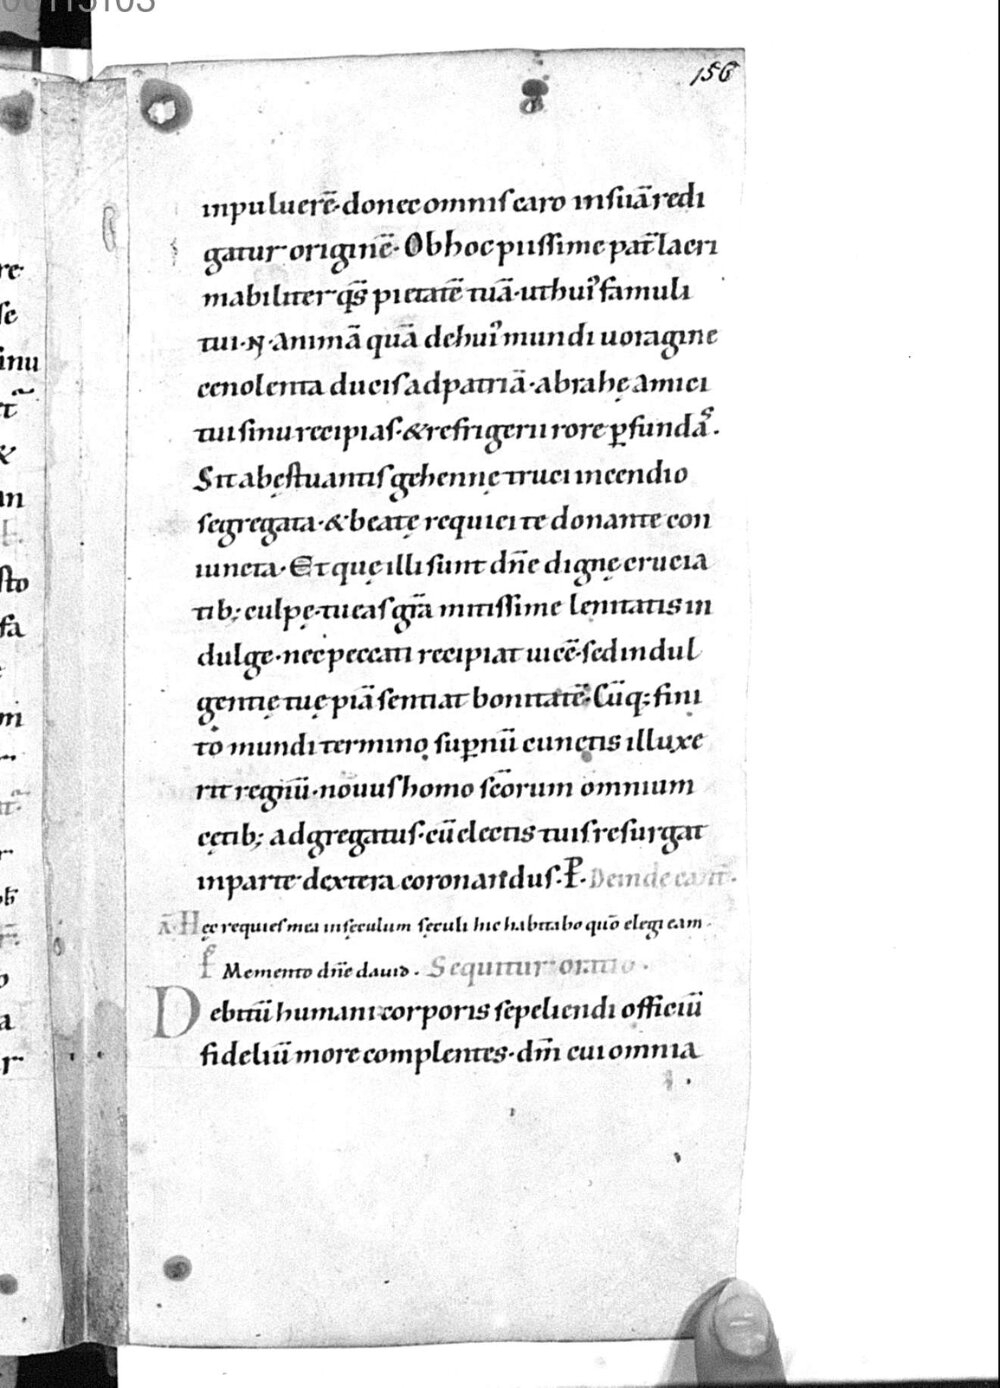 156
inpuluerē·donec omnis caro insuā redi
gatur originē· Obhoc piissime pat̄ lacri
mabiliter qs̄ pietatē tuā·uthui᾿ famuli
tui·N·animā quā dehui᾿ mundi uoragine
cenolenta ducis adpatriā·abrahę amici
tui sinu recipias·&refrigerii rore ꝑfundas.
Sit abęstuantis gehennę truci incendio
segregata·&beatę requiei te donante con
iuncta· Et quę illi sunt dn̄e dignę crucia
tib; culpę·tu eas grā mitissime lenitatis in
dulge·nec peccati recipiat uicē·sed indul
gentię tuę piā sentiat bonitatē· Cūq; fini
to mundi termino suꝑnū cunctis illuxe
rit regnū·nouus homo scōrum omnium
cętib; adgregatus·cū electis tuis resurgat
inparte dextera coronandus.P. Deinde cant̄.
Ā Hęc requies mea insęculum sęculi hic habitabo quō elegi eam.
Memento dn̄e dauid. Sequitur oratio.
Debitū humani corporis sepeliendi officiū
fideliū more complentes·dm̄ cui omnia
re
se
inu
&
an
sto
fa